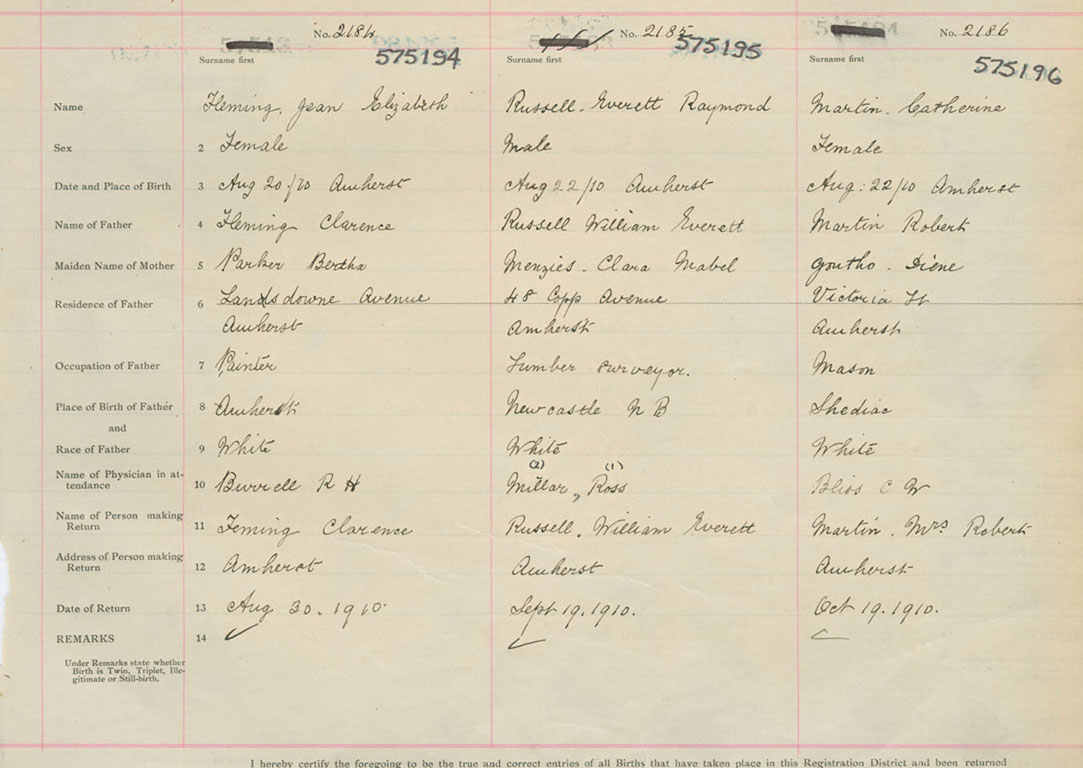 No. 2184 No. 2185 No. 2186
Surname first 575194 Surname first 575195 Surname first 575196
Name Fleming, Jean Elizabeth Russell. Everett Raymond Martin. Catherine
Sex 2 Female Male Female
Date and Place of Birth 3 Aug 20/10 Amherst Aug 22/10 Amherst Aug: 22/10 Amherst
Name of Father 4 Fleming Clarence Russell William Everett Martin Robert
Maiden Name of Mother 5 Parker Bertha Menzies. Clara Mabel Goutho. Diene
Residence of Father 6 Landsdowne Avenue 48 Copp Avenue Victoria St
Amherst Amherst Amherst
Occupation of Father 7 Painter Lumber surveyor. Mason
Place of Birth of Father 8 Amherst Newcastle N B Shediac
and
Race of Father 9 White White White
(2) (1)
Name of Physician in at-
tendance 10 Burrell R H Millar, Ross Bliss C W
Name of Person making
Return 11 Feming Clarence Russell. William Everett Martin. Mrs Robert
Address of Person making
Return 12 Amherst Amherst Amherst
Date of Return 13 Aug 30. 1910. Sept 19. 1910. Oct 19. 1910.
REMARKS 14
Under Remarks state whether
Birth is Twin, Triplet, Ille-
gitimate or Still-birth.
I hereby certify the foregoing to be the true and correct entries of all Births that have taken place in this Registration District and been returned